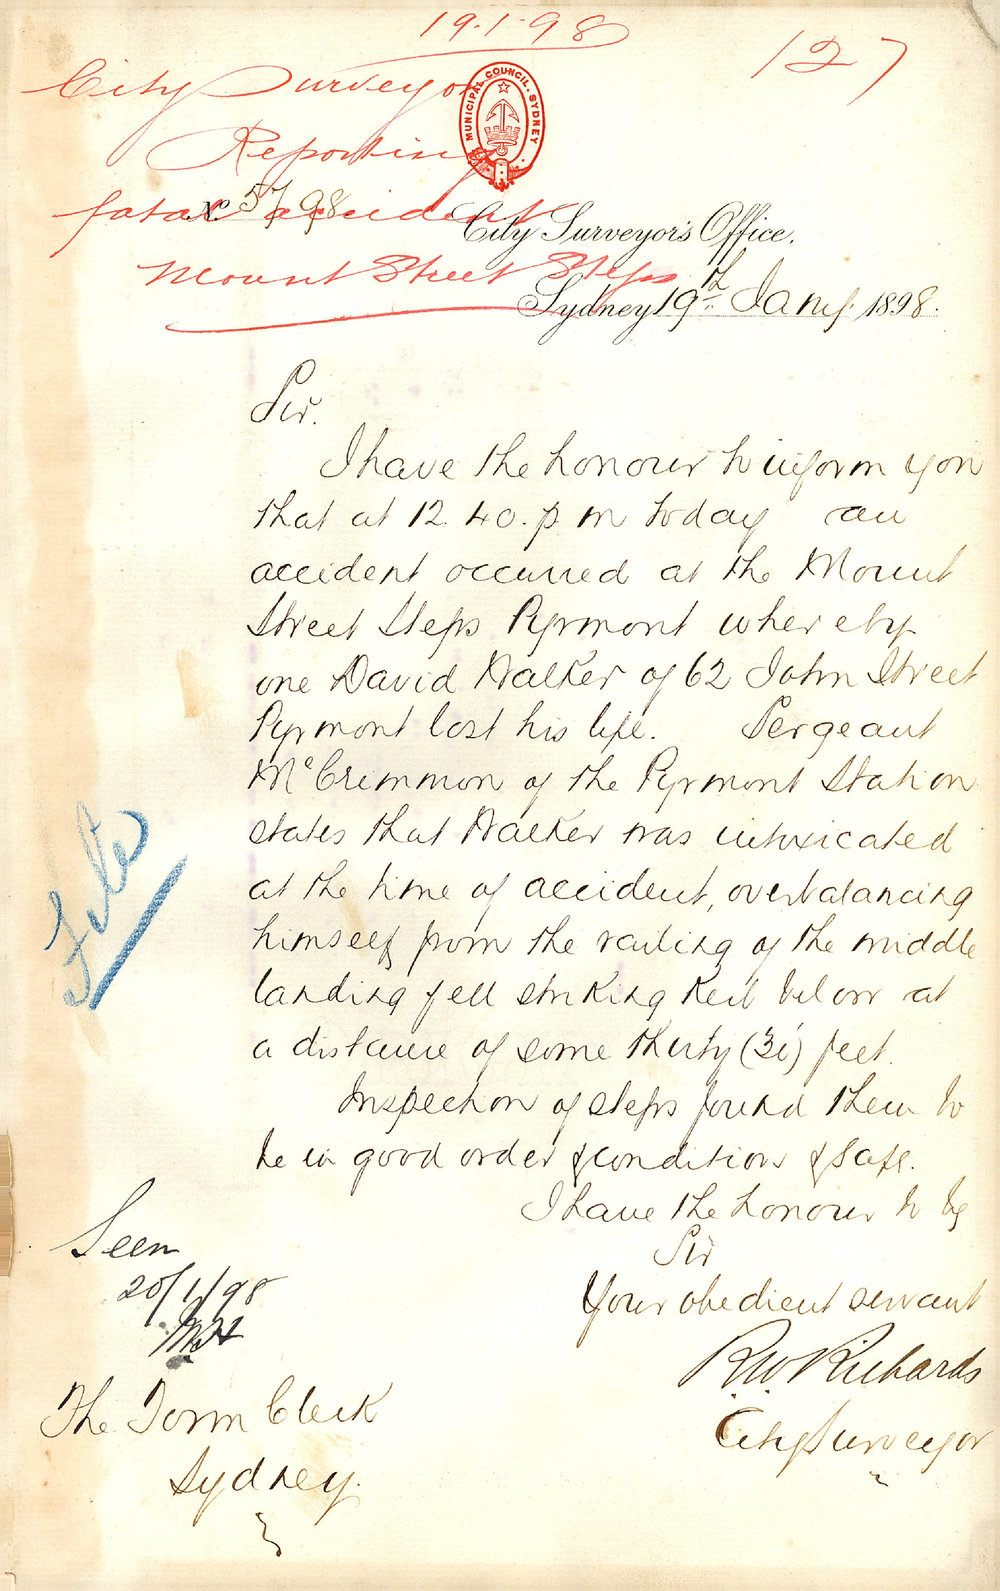 19.1.98
127
City Surveyor
Reporting
fatal accident
Mount Street Steps
MUNICIPAL COUNCIL. SYDNEY
No 57/98
City Surveyor's Office.
Sydney 19th Jany. 1898.
Sir.
I have the honour to inform you
that at 12.40. p m today an
accident occurred at the Mount
Street Steps Pyrmont whereby
one David Walker of 62 John Street
Pyrmont lost his life. Sergeant
McCrimmon of the Pyrmont Station
states that Walker was intoxicated
at the time of accident, overbalancing
himself from the railing of the middle
landing fell striking kerb below at
a distance of some thirty (30) feet.
Inspection of steps found them to
be in good order & condition & safe.
I have the honour to be
Sir
Your obedient servant
R.W. Richards
City Surveyor
File
Seen
20/1/98
The Town Clerk
Sydney.